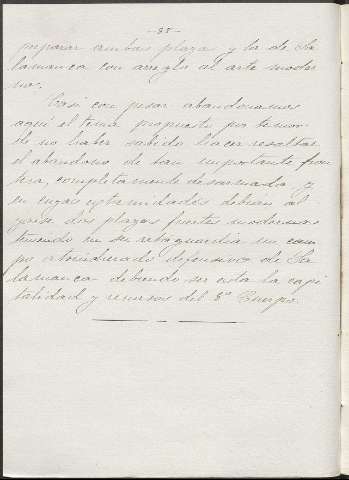 -38-
preparar ambas plazas y la de Sa
lamanca con arreglo al arte moder
no.
Casi con pesar abandonamos
aquí el tema propuesto por temor
de no haber sabido hacer resaltar
el abandono de tan importante fron
tera, completamente desarmada y
en cuyas extremidades debían al
zarse dos plazas fuertes modernas
teniendo en su retaguardia un cam
po atrincherado defensivo de Sa
lamanca debiendo ser esta la capi
talidad y recursos del 8º Cuerpo.